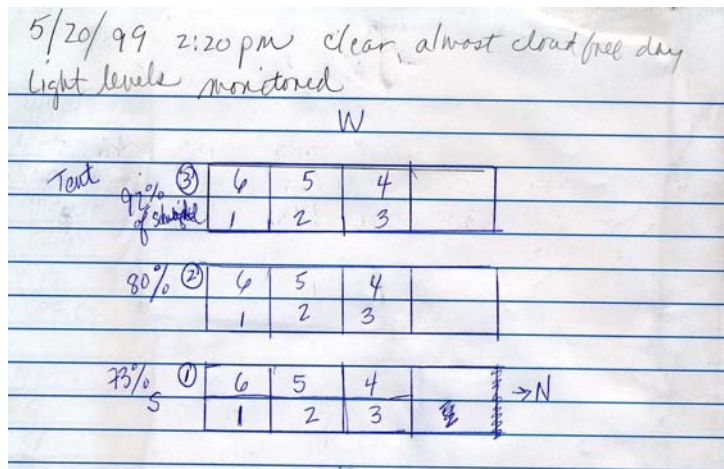 5/20/99 2:20 pm clear, almost cloud free day
Light levels monitored
W
Tent
92% ③ 6 5 4
of 1 2 3
80% ② 6 5 4
1 2 3
73% ① 6 5 4
→N
S 1 2 3